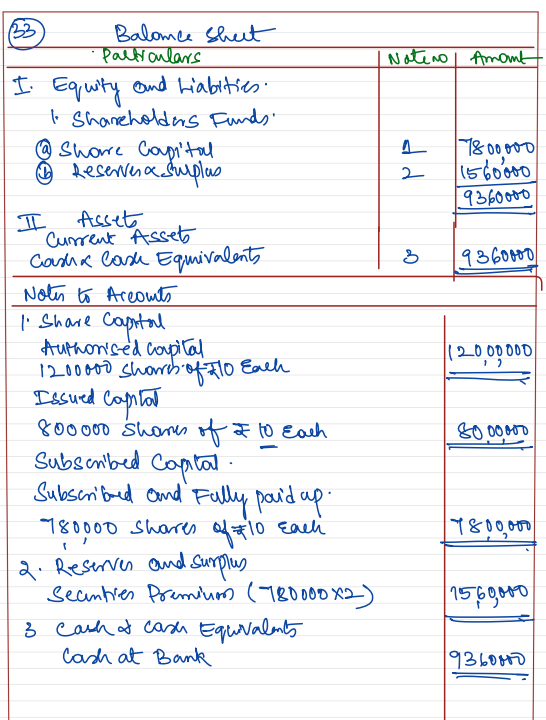 33 Balance Sheet
Particulars Note no Amount
I. Equity and Liabities.
1. Shareholders Funds.
(a) Share Capital 1 7800,000
(b) Reserves & Surplus 2 1560,000
9360000
II Assets
Current Assets
Cash & Cash Equivalents 3 9360000
Notes to Accounts
1. Share Capital
Authorised capital 12,0,00000
1200000 shares of ₹10 Each
Issued Capital
800000 shares of ₹10 Each 80,0,0000
Subscribed Capital.
Subscribed and Fully paid up.
780,000 shares of ₹10 Each 78,00,000
2. Reserves and Surplus
Securities Premium (780000x2) 15,60,000
3 Cash & Cash Equivalents
Cash at Bank 9360000